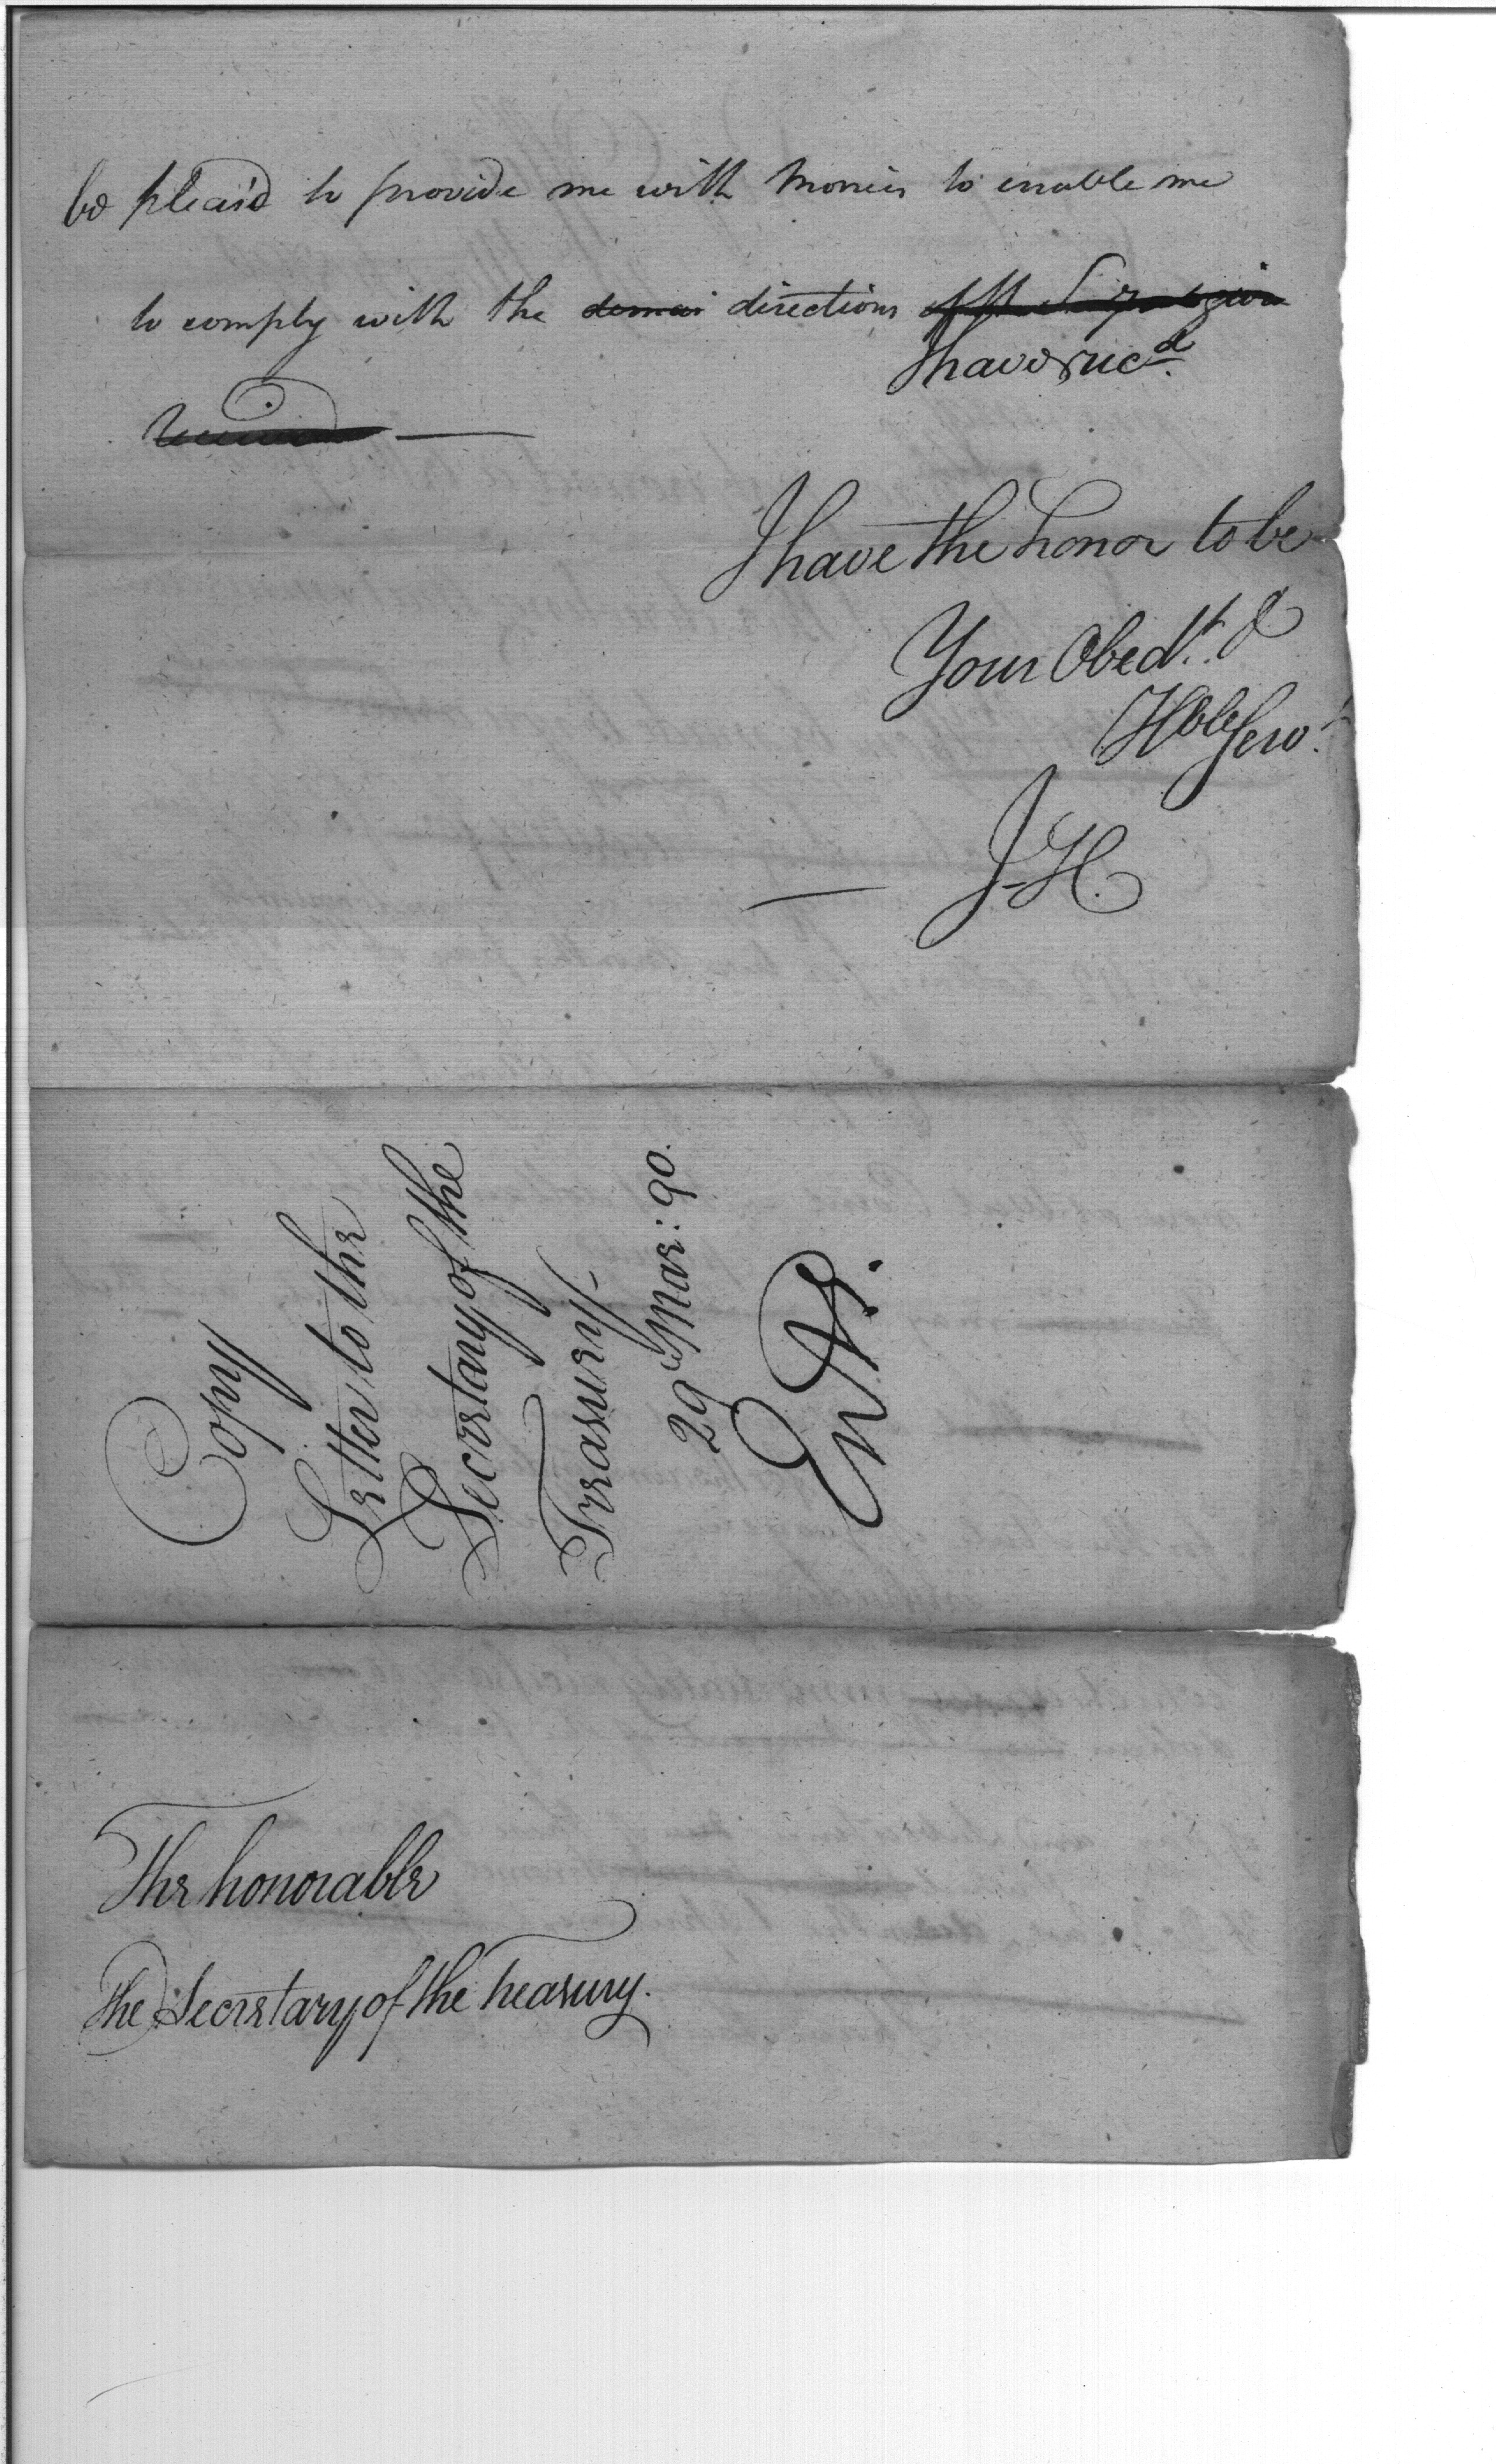 be pleas'd to provide me with Monies to enable me
to comply with the demai directions
I have recd.
received
I have the honor to be
Your Obedt. &
Hble Servt.
J-H.
Copy
Letter to the
Secretary of the
Treasury.
29 Mar: 90.
Entd.
The honorable
The Secretary of the treasury.